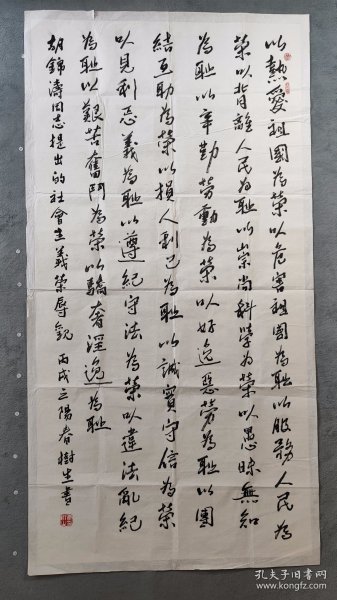 以熱愛祖國為榮以危害祖國為耻以服務人民為
榮以背離人民為耻以崇尚科學為榮以愚昧無知
為耻以辛勤勞動為榮以好逸惡勞為耻以團
結互助為榮以損人利己為耻以誠實守信為榮
以見利忘義為耻以遵紀守法為榮以違法亂紀
為耻以艱苦奮鬥為榮以驕奢淫逸為耻
胡錦濤同志提出的社會主義榮辱觀 丙戌三陽春樹生書
孔夫子旧书网